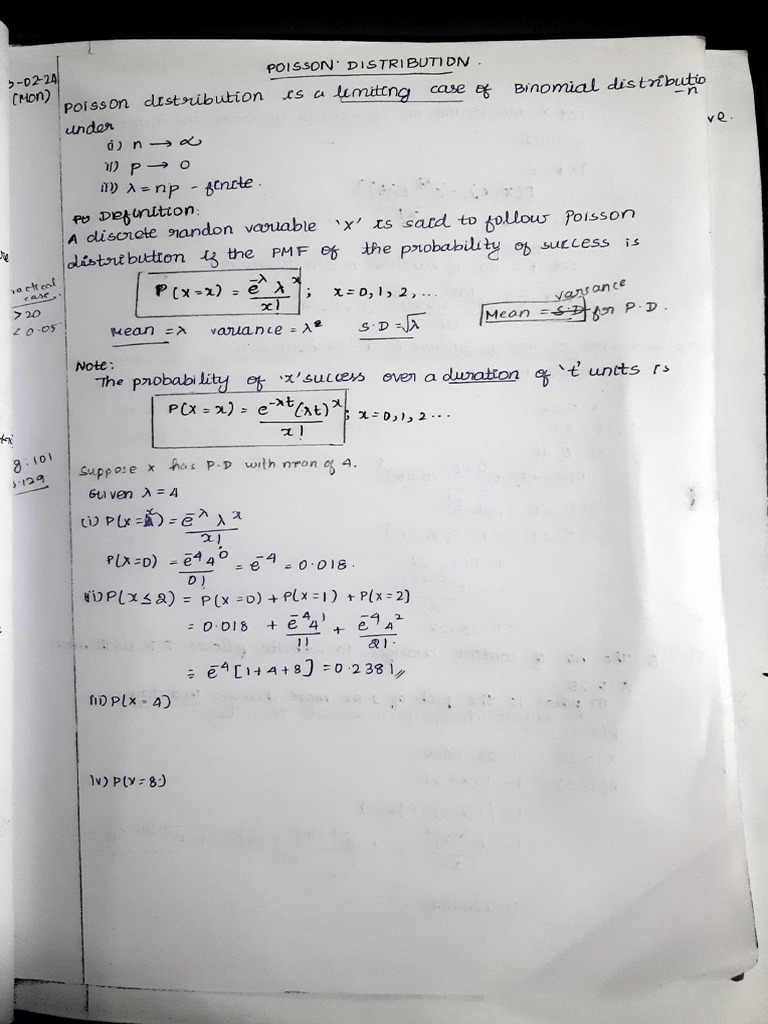 POISSON DISTRIBUTION.
-02-24
(Mon)
Poisson distribution is a limiting case of Binomial distributio
-n
under
i) n → ∝
ii) p → 0
iii) λ = np - finite.
Definition:
A discrete randon variable 'X' is said to follow Poisson
distribution if the PMF of the probability of success is
case.
>20
<0.05
P(X=x) = e^-λ λ^x / x! ; x=0,1,2,...
variance
Mean = S.D for P.D.
Mean = λ variance = λ² S.D = √λ
Note:
The probability of 'x' success over a duration of 't' units is
P(X=x) = e^-λt (λt)^x / x! ; x=0,1,2...
g:101
.129
Suppose x has P.D with mean of 4.
Given λ = 4
(i) P(X=x) = e^-λ λ^x / x!
P(X=0) = e^-4 4^0 / 0! = e^-4 = 0.018.
ii) P(x≤2) = P(X=0) + P(X=1) + P(X=2)
= 0.018 + e^-4 4^1 / 1! + e^-4 4^2 / 2!
= e^-4 [1+4+8] = 0.2381
iii) P(X=4)
iv) P(X=8)
ve.